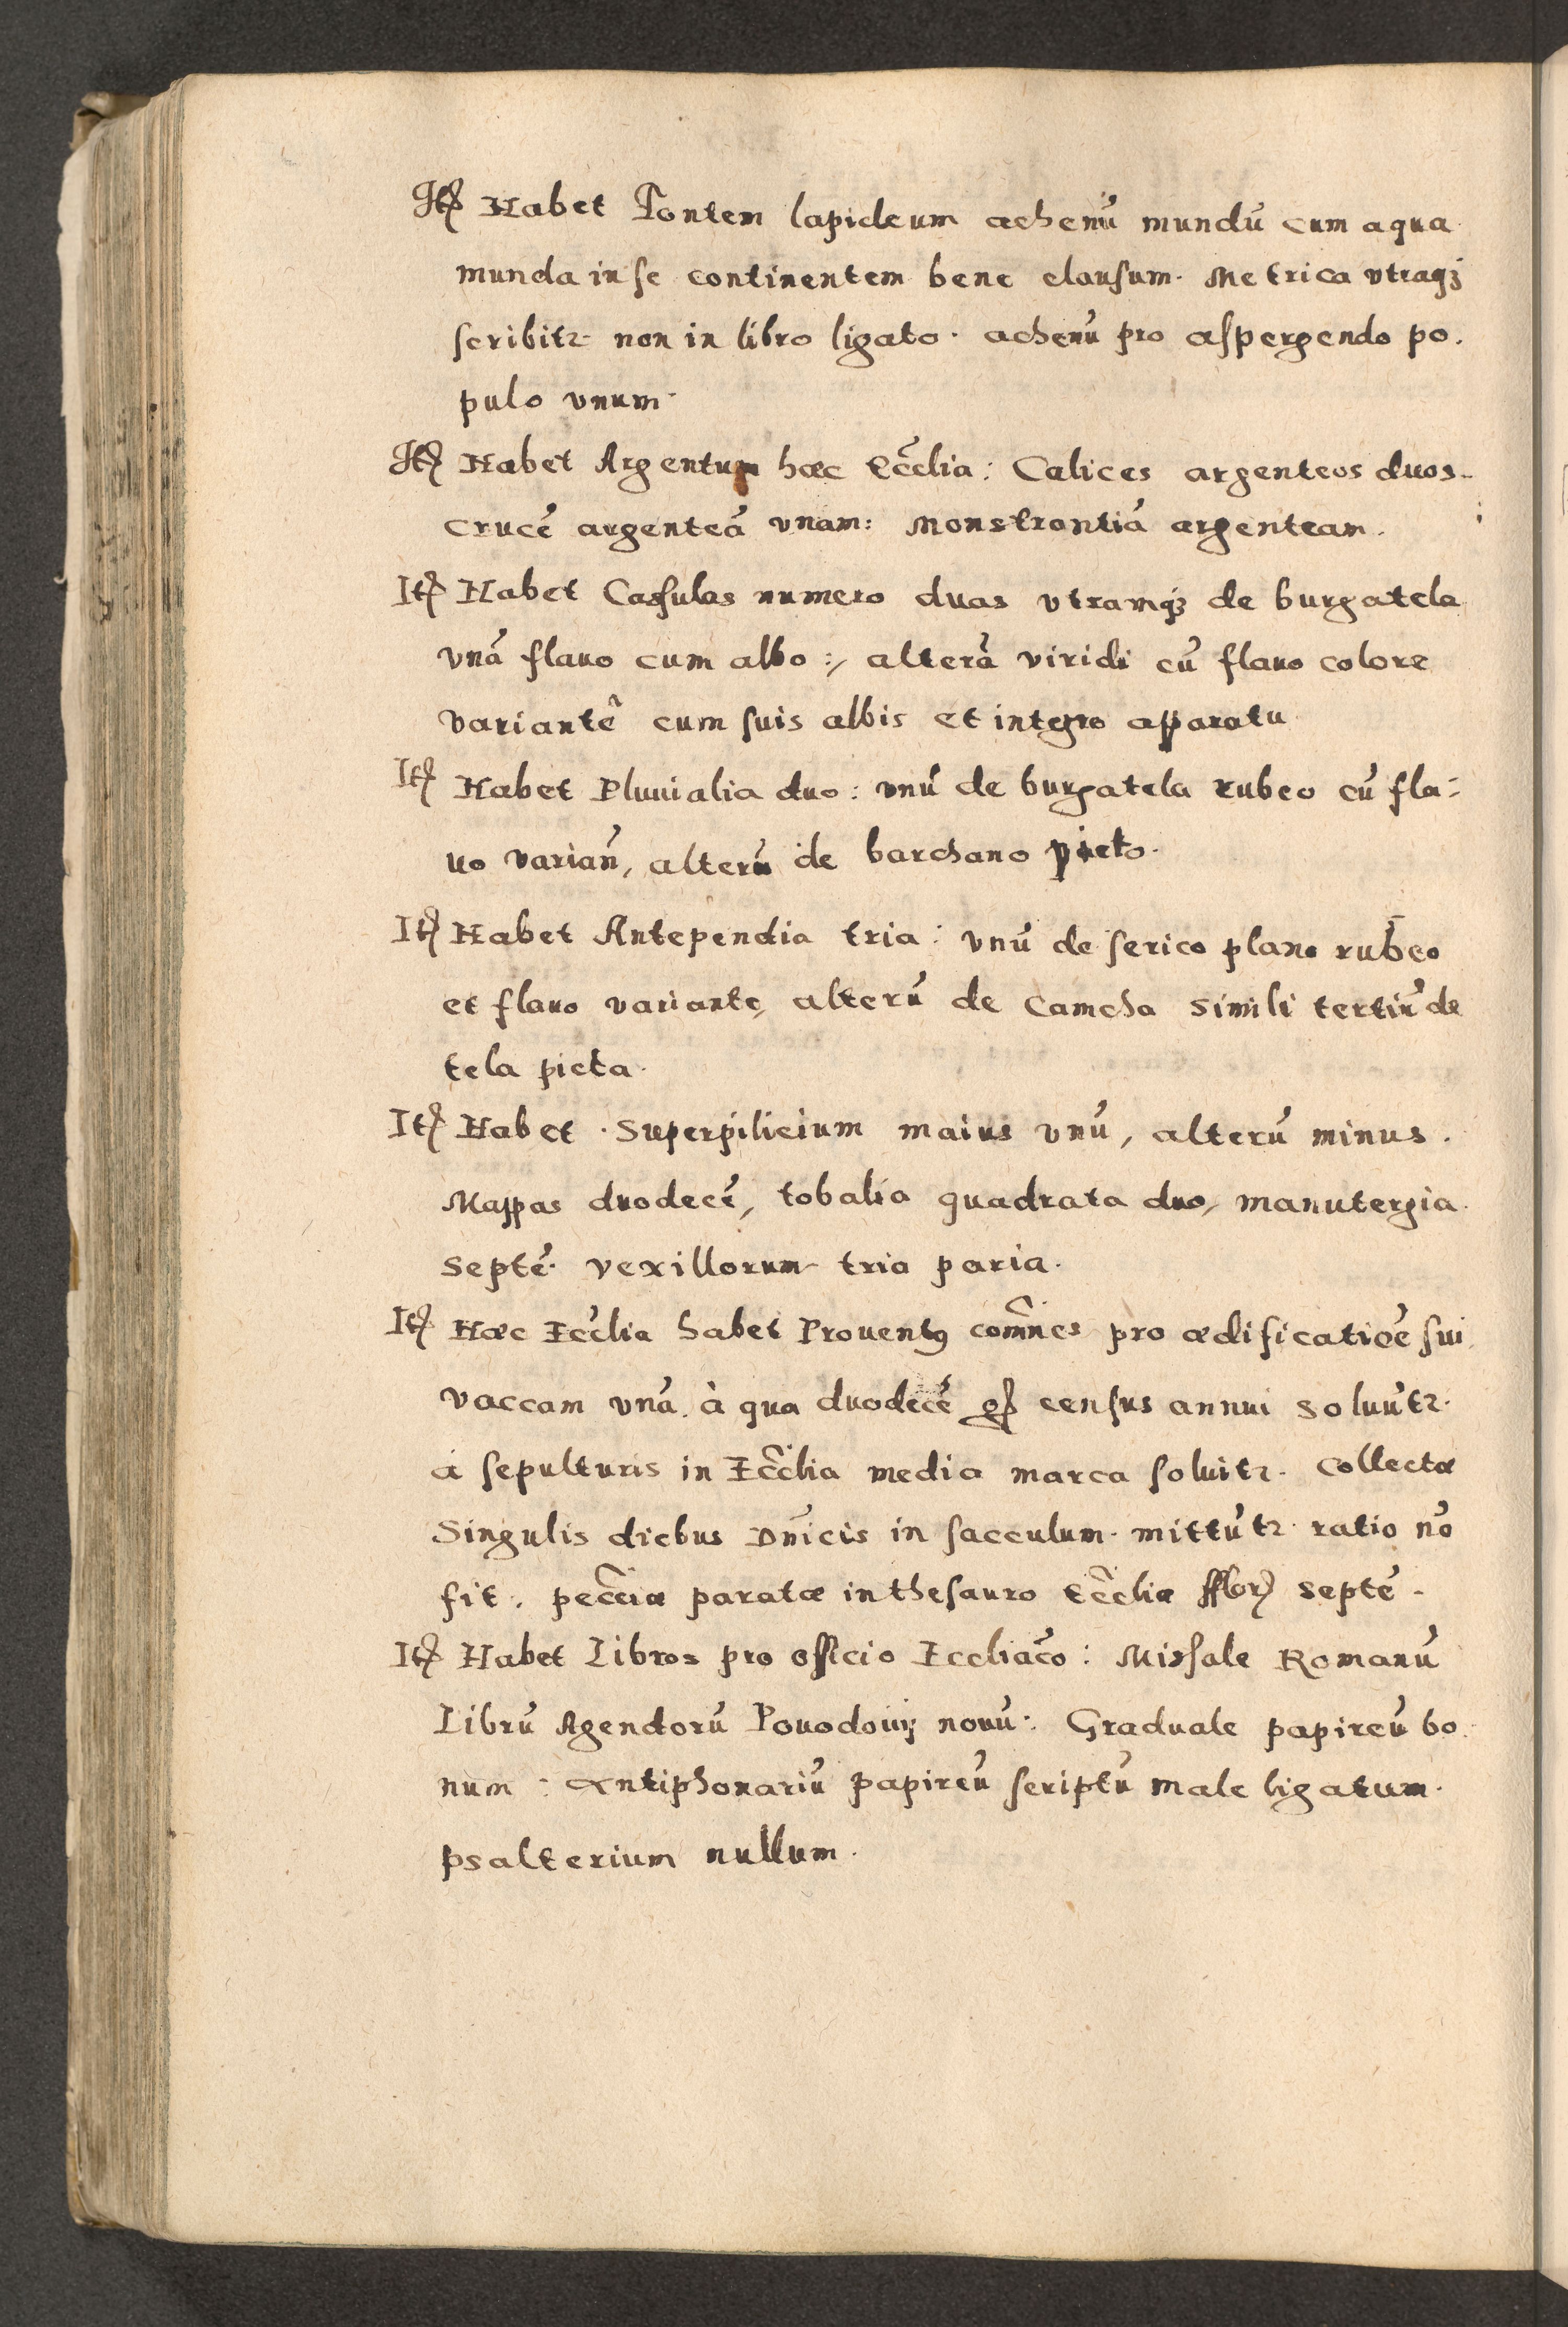 Itē Habet Fontem lapideum achenū mundū cum aqua
munda in se continentem bene clausum. Metrica vtraqꝫ
scribitꝛ non in libro ligato. achenū pro aspergendo po.
pulo vnum.
Itē Habet Argentum hæc Eccl̃ia: Calices argenteos duos.
crucē argenteā vnam: Monstrantiā argenteam.
Itē Habet Casulas numero duas vtramqꝫ de burgatela
vnā flauo cum albo:, alterā viridi cū flauo colore
variantē cum suis albis et integro apparatu
Itē Habet Pluuialia duo: vnū de burgatela rubeo cū fla:
uo varian̄, alterū de barchano picto.
Itē Habet Antependia tria: vnū de serico plano rubeo
et flauo variante, alterū de Camcha simili tertiū de
tela picta.
Itē Habet Superpilicium maius vnū, alterū minus.
Mappas duodecē, tobalia quadrata duo, manutergia
septē. vexillorum tria paria.
Itē Hæc Eccl̃ia habet Prouentꝯ com̃nes pro ædificatiõe sui.
vaccam vnā. à qua duodecē gꝭ census annui soluūtꝛ.
à sepulturis in Eccl̃ia media marca soluitꝛ. Collectæ
Singulis diebus Dñicis in sacculum mittūtꝛ. ratio nō
fit. pecc̃iæ paratæ in thesauro Eccl̃iæ fflorꝭ septē.
Itē Habet Libros pro officio Eccliãco: Missale Romanū
Librū Agendorū Pouodouij nouū: Graduale papireū bo.
num: Antiphonariū papireū scriptū male ligatum.
psalterium nullum.